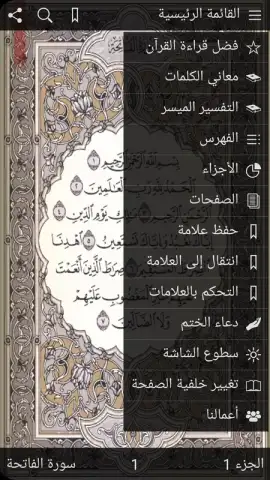 القائمة الرئيسية
فضل قراءة القرآن
معاني الكلمات
التفسير الميسر
الفهرس
الأجزاء
الصفحات
حفظ علامة
انتقال إلى العلامة
التحكم بالعلامات
دعاء الختم
سطوع الشاشة
تغيير خلفية الصفحة
أعمالنا
بِسْمِ ٱللَّهِ ٱلرَّحْمَٰنِ ٱلرَّحِيمِ ١
ٱلْحَمْدُ لِلَّهِ رَبِّ ٱلْعَٰلَمِينَ ٢
يَوْمِ ٱلدِّينِ ٤
وَإِيَّاكَ نَسْتَعِينُ ٥ ٱهْدِنَا
صِرَٰطَ ٱلَّذِينَ أَنْعَمْتَ
ٱلْمَغْضُوبِ عَلَيْهِمْ
وَلَا ٱلضَّآلِّينَ ٧
الجزء 1
1
سورة الفاتحة